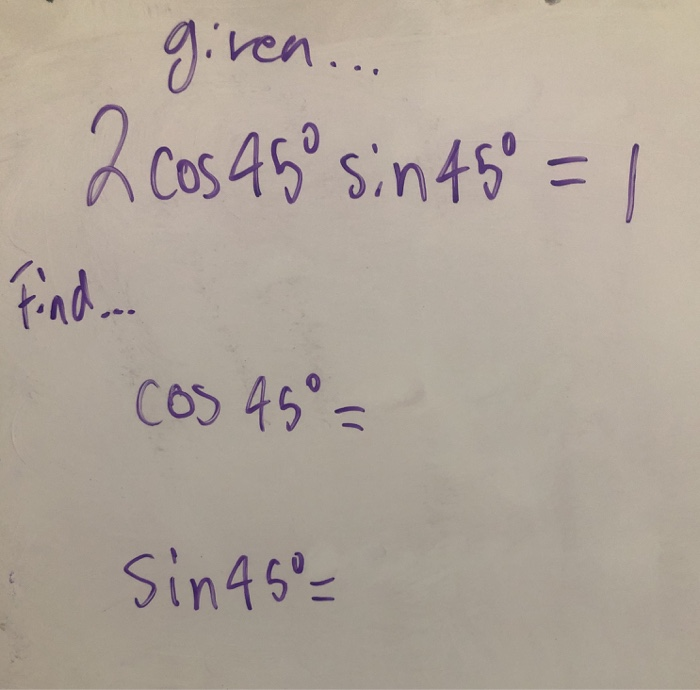 given...
2 cos 45° sin 45° = 1
Find...
cos 45° =
Sin 45° =